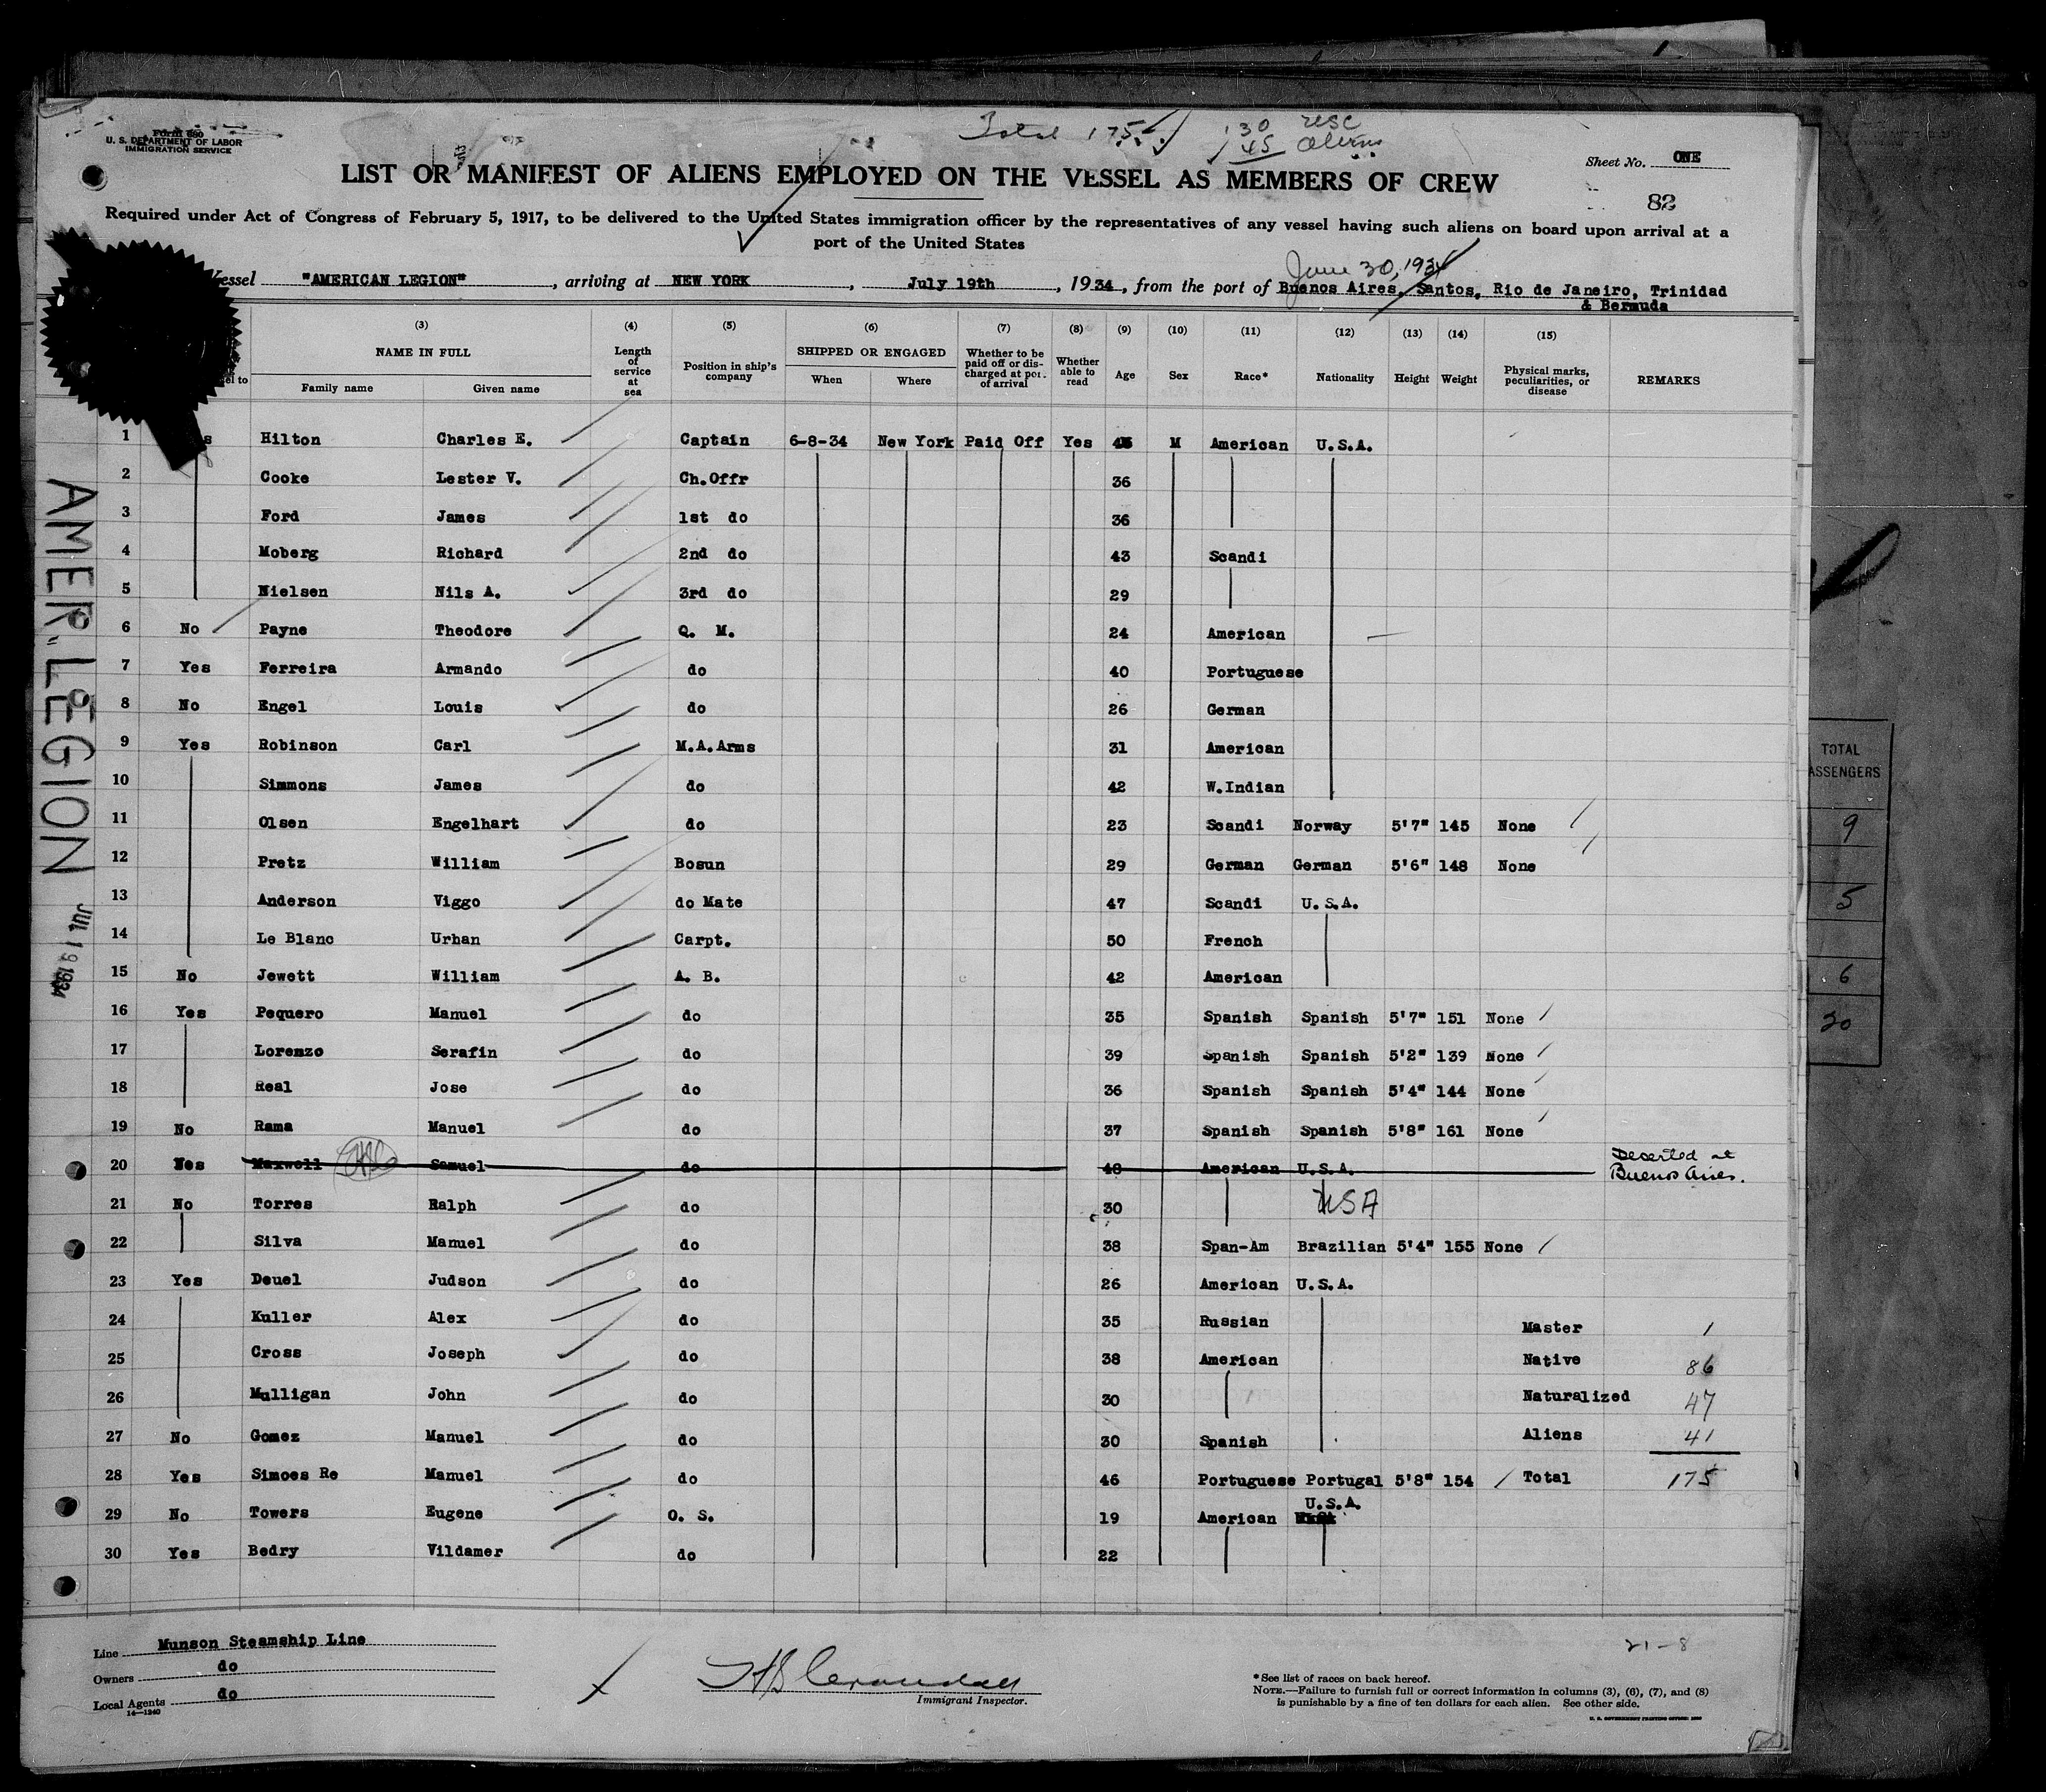 Total 175 130 USC
45 Aliens
Form 680
U. S. DEPARTMENT OF LABOR
IMMIGRATION SERVICE
Sheet No. ONE
LIST OR MANIFEST OF ALIENS EMPLOYED ON THE VESSEL AS MEMBERS OF CREW
82
Required under Act of Congress of February 5, 1917, to be delivered to the United States immigration officer by the representatives of any vessel having such aliens on board upon arrival at a
port of the United States
June 30, 1934
Vessel "AMERICAN LEGION", arriving at NEW YORK, July 19th, 1934, from the port of Buenos Aires, Santos, Rio de Janeiro, Trinidad
& Bermuda
(3) (4) (5) (6) (7) (8) (9) (10) (11) (12) (13) (14) (15)
NAME IN FULL Length of service at sea Position in ship's company SHIPPED OR ENGAGED Whether to be paid off or discharged at port of arrival Whether able to read Age Sex Race* Nationality Height Weight Physical marks, peculiarities, or disease REMARKS
Family name Given name When Where
1 Hilton Charles E. Captain 6-8-34 New York Paid Off Yes M American U.S.A.
2 Cooke Lester V. Ch.Offr 36
3 Ford James 1st do 36
4 Moberg Richard 2nd do 43 Scandi
5 Nielsen Nils A. 3rd do 29
6 No Payne Theodore Q. M. 24 American
7 Yes Ferreira Armando do 40 Portuguese
8 No Engel Louis do 26 German
9 Yes Robinson Carl M.A.Arms 31 American
10 Simmons James do 42 W.Indian
11 Olsen Engelhart do 23 Scandi Norway 5'7" 145 None
12 Pretz William Bosun 29 German German 5'6" 148 None
13 Anderson Viggo do Mate 47 Scandi U.S.A.
14 Le Blanc Urhan Carpt. 50 French
15 No Jewett William A. B. 42 American
16 Yes Pequero Manuel do 35 Spanish Spanish 5'7" 151 None
17 Lorenzo Serafin do 39 Spanish Spanish 5'2" 139 None
18 Real Jose do 36 Spanish Spanish 5'4" 144 None
19 No Rama Manuel do 37 Spanish Spanish 5'8" 161 None
20 Yes Maxwell Samuel do 48 American U.S.A. Deserted at Buenos Aires.
21 No Torres Ralph do 30 USA
22 Silva Manuel do 38 Span-Am Brazilian 5'4" 155 None
23 Yes Deuel Judson do 26 American U.S.A.
24 Kuller Alex do 35 Russian Master 1
25 Cross Joseph do 38 American Native 86
26 Mulligan John do 30 Naturalized 47
27 No Gomez Manuel do 30 Spanish Aliens 41
28 Yes Simoes Re Manuel do 46 Portuguese Portugal 5'8" 154 Total 175
29 No Towers Eugene O. S. 19 American U.S.A.
30 Yes Bedry Vildamer do 22
AMER. LEGION JUL 19 1934
TOTAL
PASSENGERS
9
5
6
20
21-8
Line Munson Steamship Line
Owners do
Local Agents do
14—1240
Immigrant Inspector.
*See list of races on back hereof.
NOTE.—Failure to furnish full or correct information in columns (3), (6), (7), and (8)
is punishable by a fine of ten dollars for each alien. See other side.